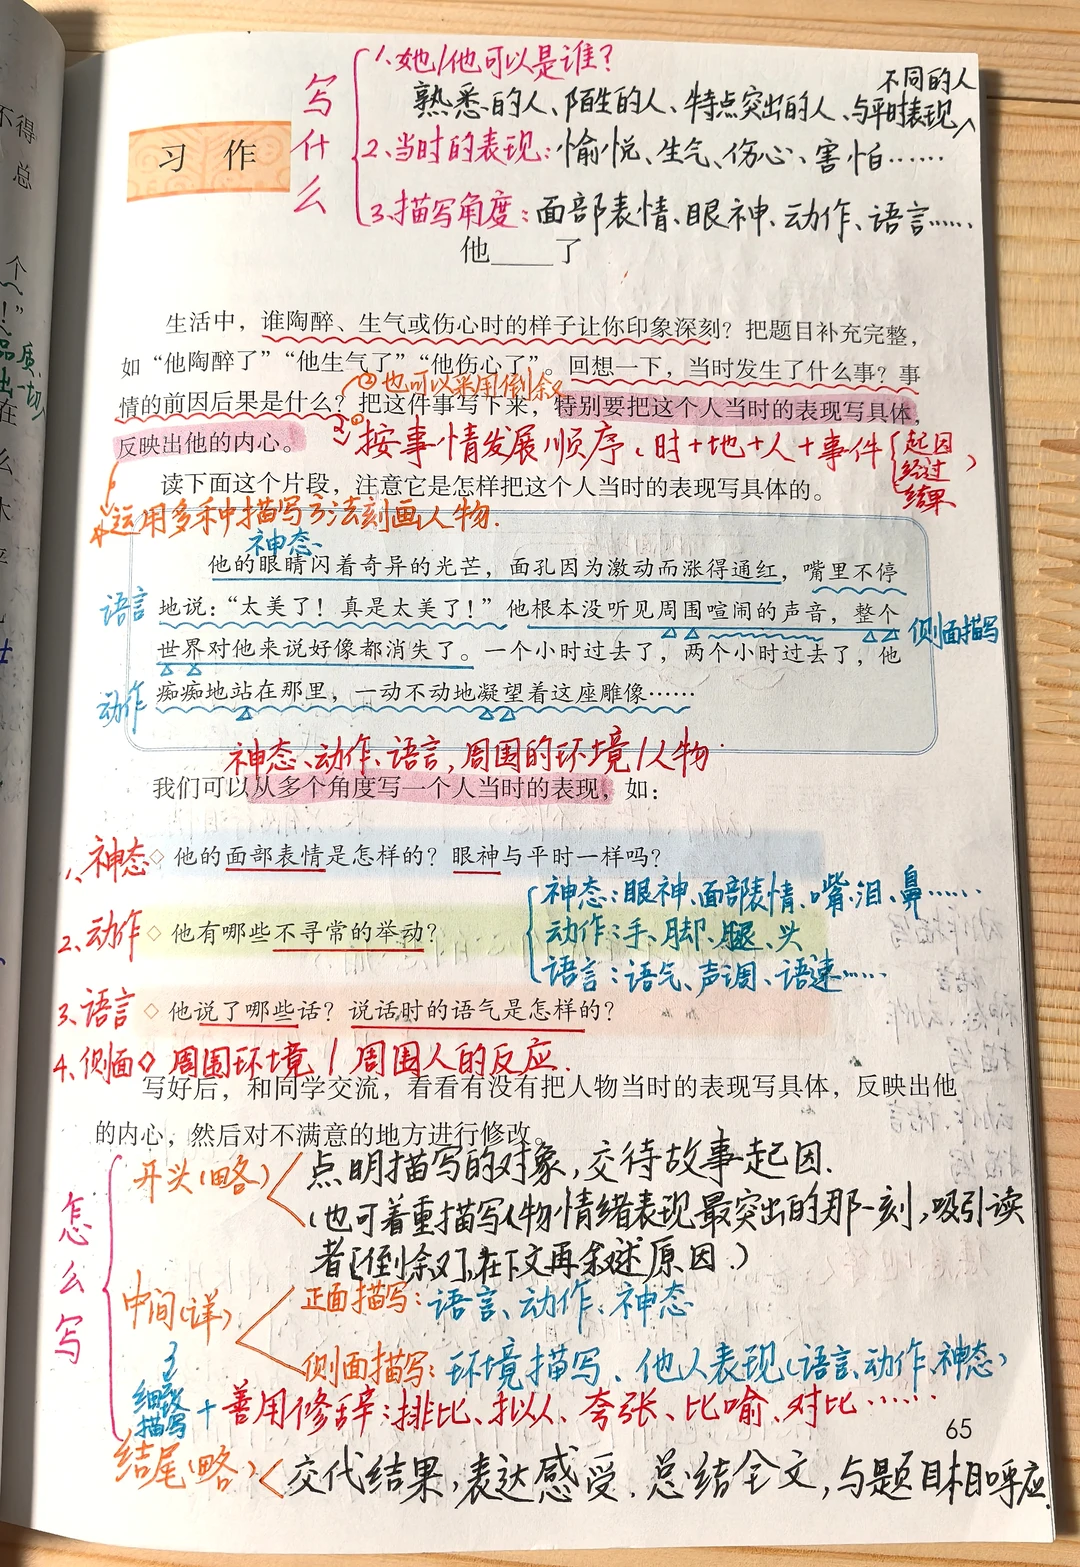 写什么
1、她/他可以是谁？
不同的人
熟悉的人、陌生的人、特点突出的人、与平时表现∧
习 作
2、当时的表现：愉悦、生气、伤心、害怕……
3、描写角度：面部表情、眼神、动作、语言……
他____了
生活中，谁陶醉、生气或伤心时的样子让你印象深刻？把题目补充完整，
如“他陶醉了”“他生气了”“他伤心了”。回想一下，当时发生了什么事？事
②也可以采用倒叙
情的前因后果是什么？把这件事写下来，特别要把这个人当时的表现写具体，
反映出他的内心。
①按事情发展顺序、时+地+人+事件
起因
经过
结果
读下面这个片段，注意它是怎样把这个人当时的表现写具体的。
运用多种描写方法刻画人物.
神态
他的眼睛闪着奇异的光芒，面孔因为激动而涨得通红，嘴里不停
语言
地说：“太美了！真是太美了！”他根本没听见周围喧闹的声音，整个
侧面描写
世界对他来说好像都消失了。一个小时过去了，两个小时过去了，他
动作
痴痴地站在那里，一动不动地凝望着这座雕像……
神态、动作、语言，周围的环境/人物.
我们可以从多个角度写一个人当时的表现，如：
1、神态
◇ 他的面部表情是怎样的？眼神与平时一样吗？
神态：眼神、面部表情、嘴、泪、鼻……
2、动作
◇ 他有哪些不寻常的举动？
动作：手、脚、腿、头
语言：语气、声调、语速……
3、语言
◇ 他说了哪些话？说话时的语气是怎样的？
4、侧面◇ 周围环境/周围人的反应.
写好后，和同学交流，看看有没有把人物当时的表现写具体，反映出他
的内心，然后对不满意的地方进行修改。
怎么写
开头（略）
点明描写的对象，交待故事起因.
（也可着重描写人物情绪表现最突出的那一刻，吸引读
者[倒叙]，在下文再叙述原因.）
中间（详）
正面描写：语言、动作、神态
侧面描写：环境描写、他人表现（语言、动作、神态）
细致描写
+善用修辞：排比、拟人、夸张、比喻、对比……
65
结尾（略）
交代结果，表达感受.总结全文，与题目相呼应.